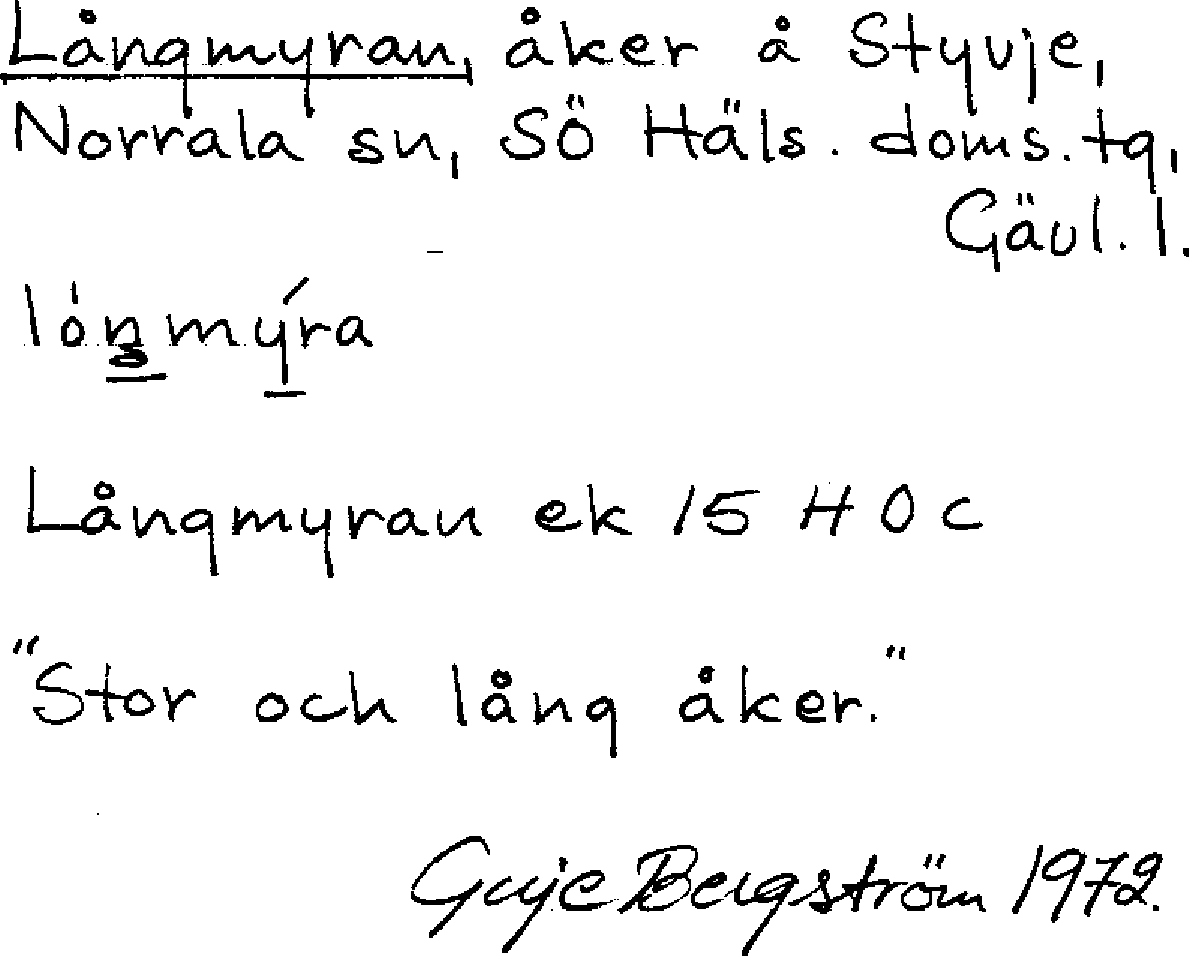 Långmyran, åker å Styvje,
Norrala sn, Sö Häls. doms. tg,
Gävl. l.
Långmyran ek 15 H 0 c
"Stor och lång åker."
Bergström 1972.